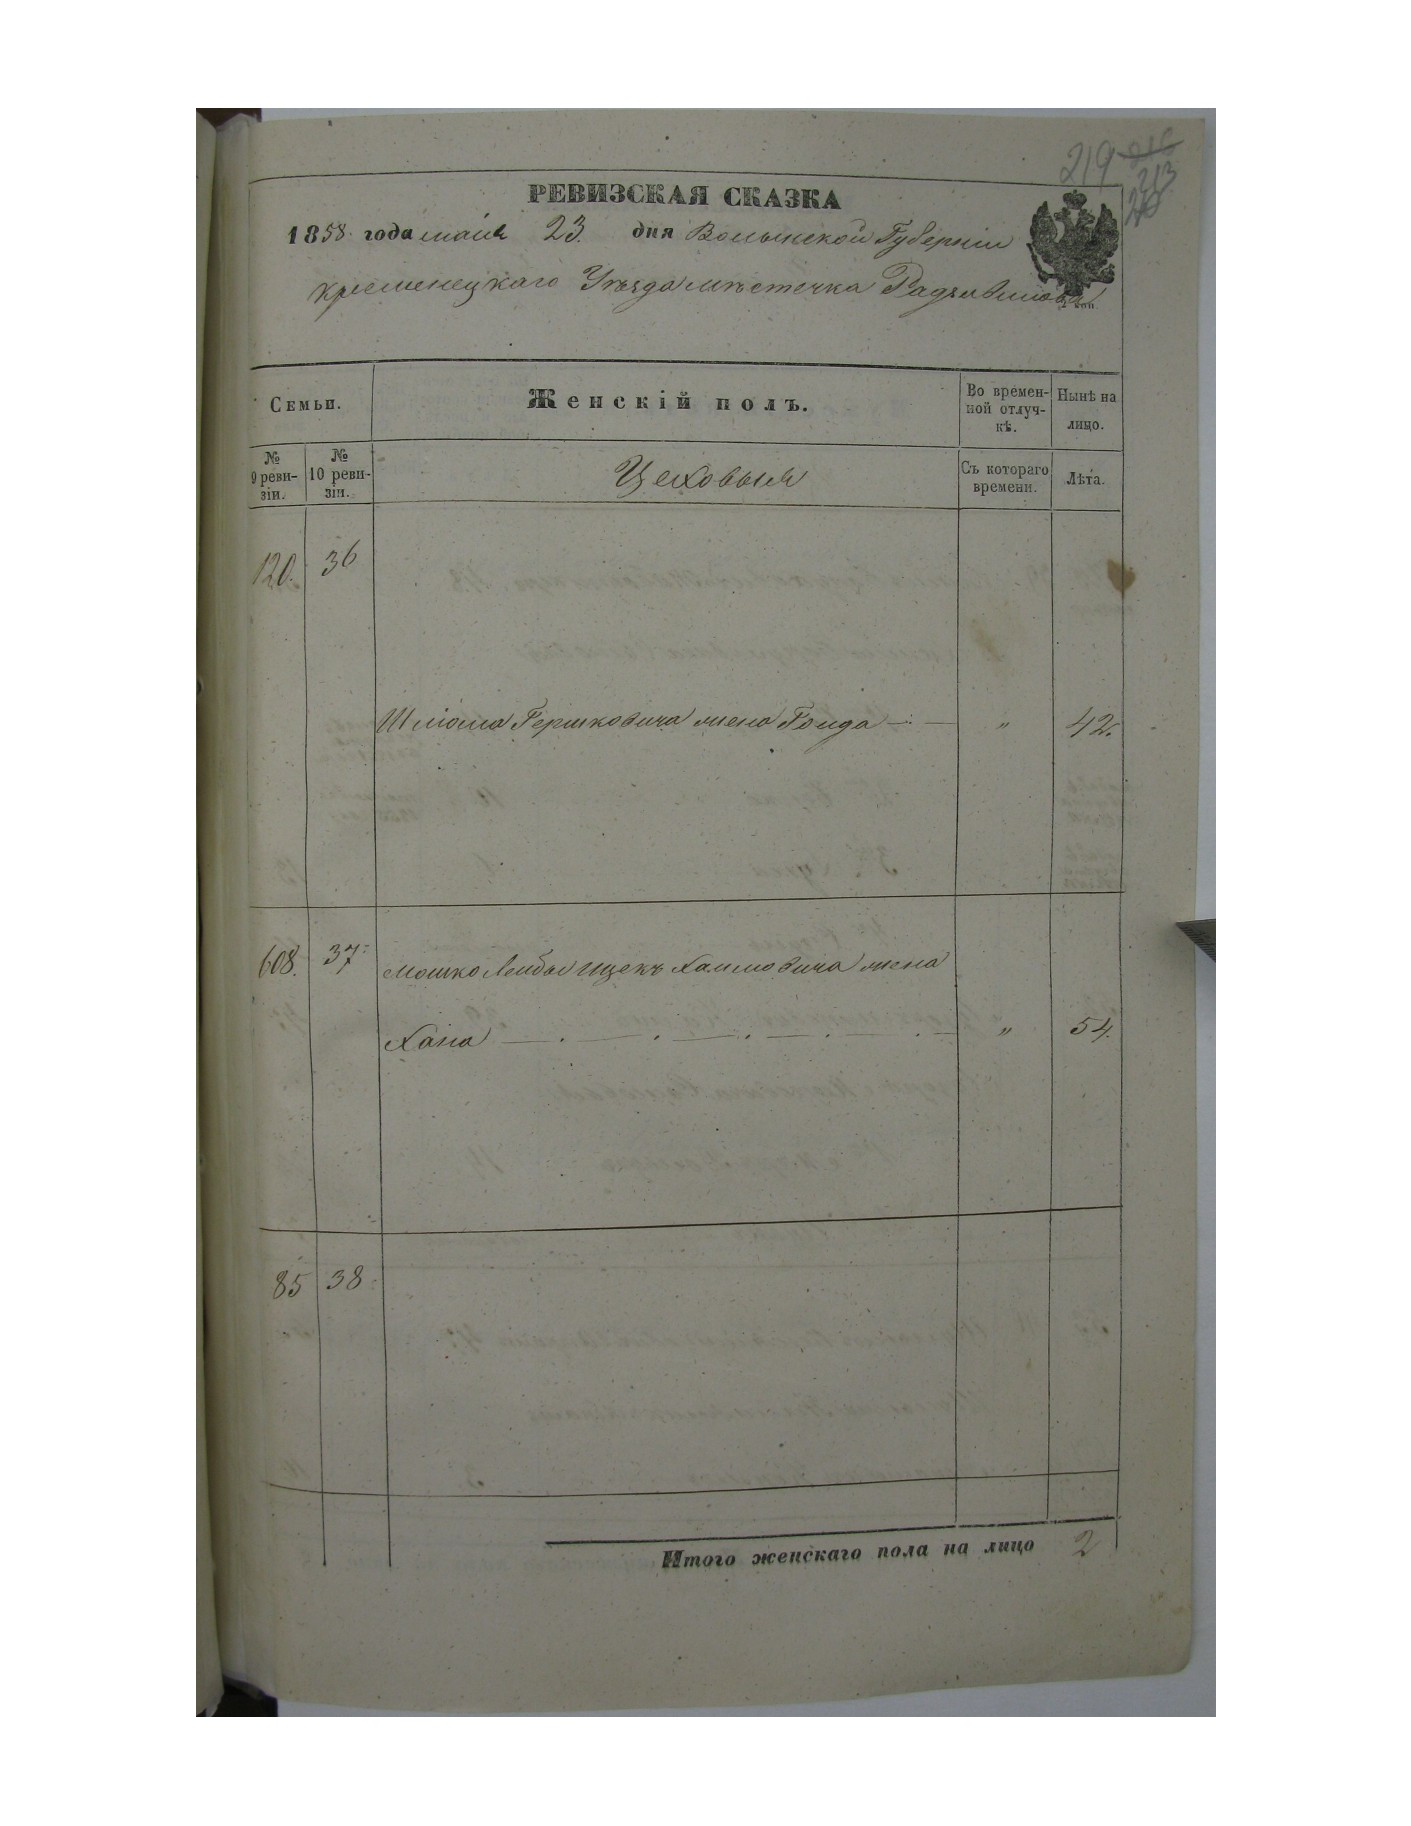 219 216
213
РЕВИЗСКАЯ СКАЗКА
1858 года мая 23. дня Волынской Губерніи
кременецкаго Уѣзда мѣстечка Радзивилова
коп.
Семьи.
Женскій полъ.
Во времен-
ной отлуч-
кѣ.
Нынѣ на
лицо.
№
9 реви-
зіи.
№
10 реви-
зіи.
Цеховыя
Съ котораго
времени.
Лѣта.
120. 36
Шлiома Гершковича жена Гольда „ 42.
608. 37
Мошко Лейбы Ицекъ Хаимовича жена
Хана „ 54.
85 38
Итого женскаго пола на лицо 2